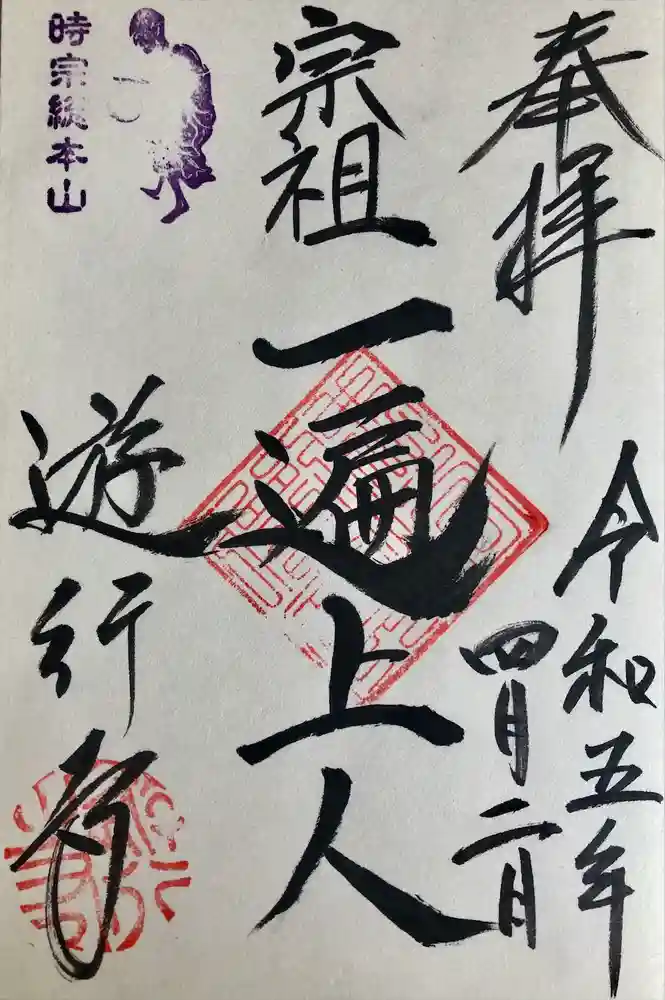 奉拝
令和五年
四月二月
宗祖
一遍上人
時宗総本山
遊行寺